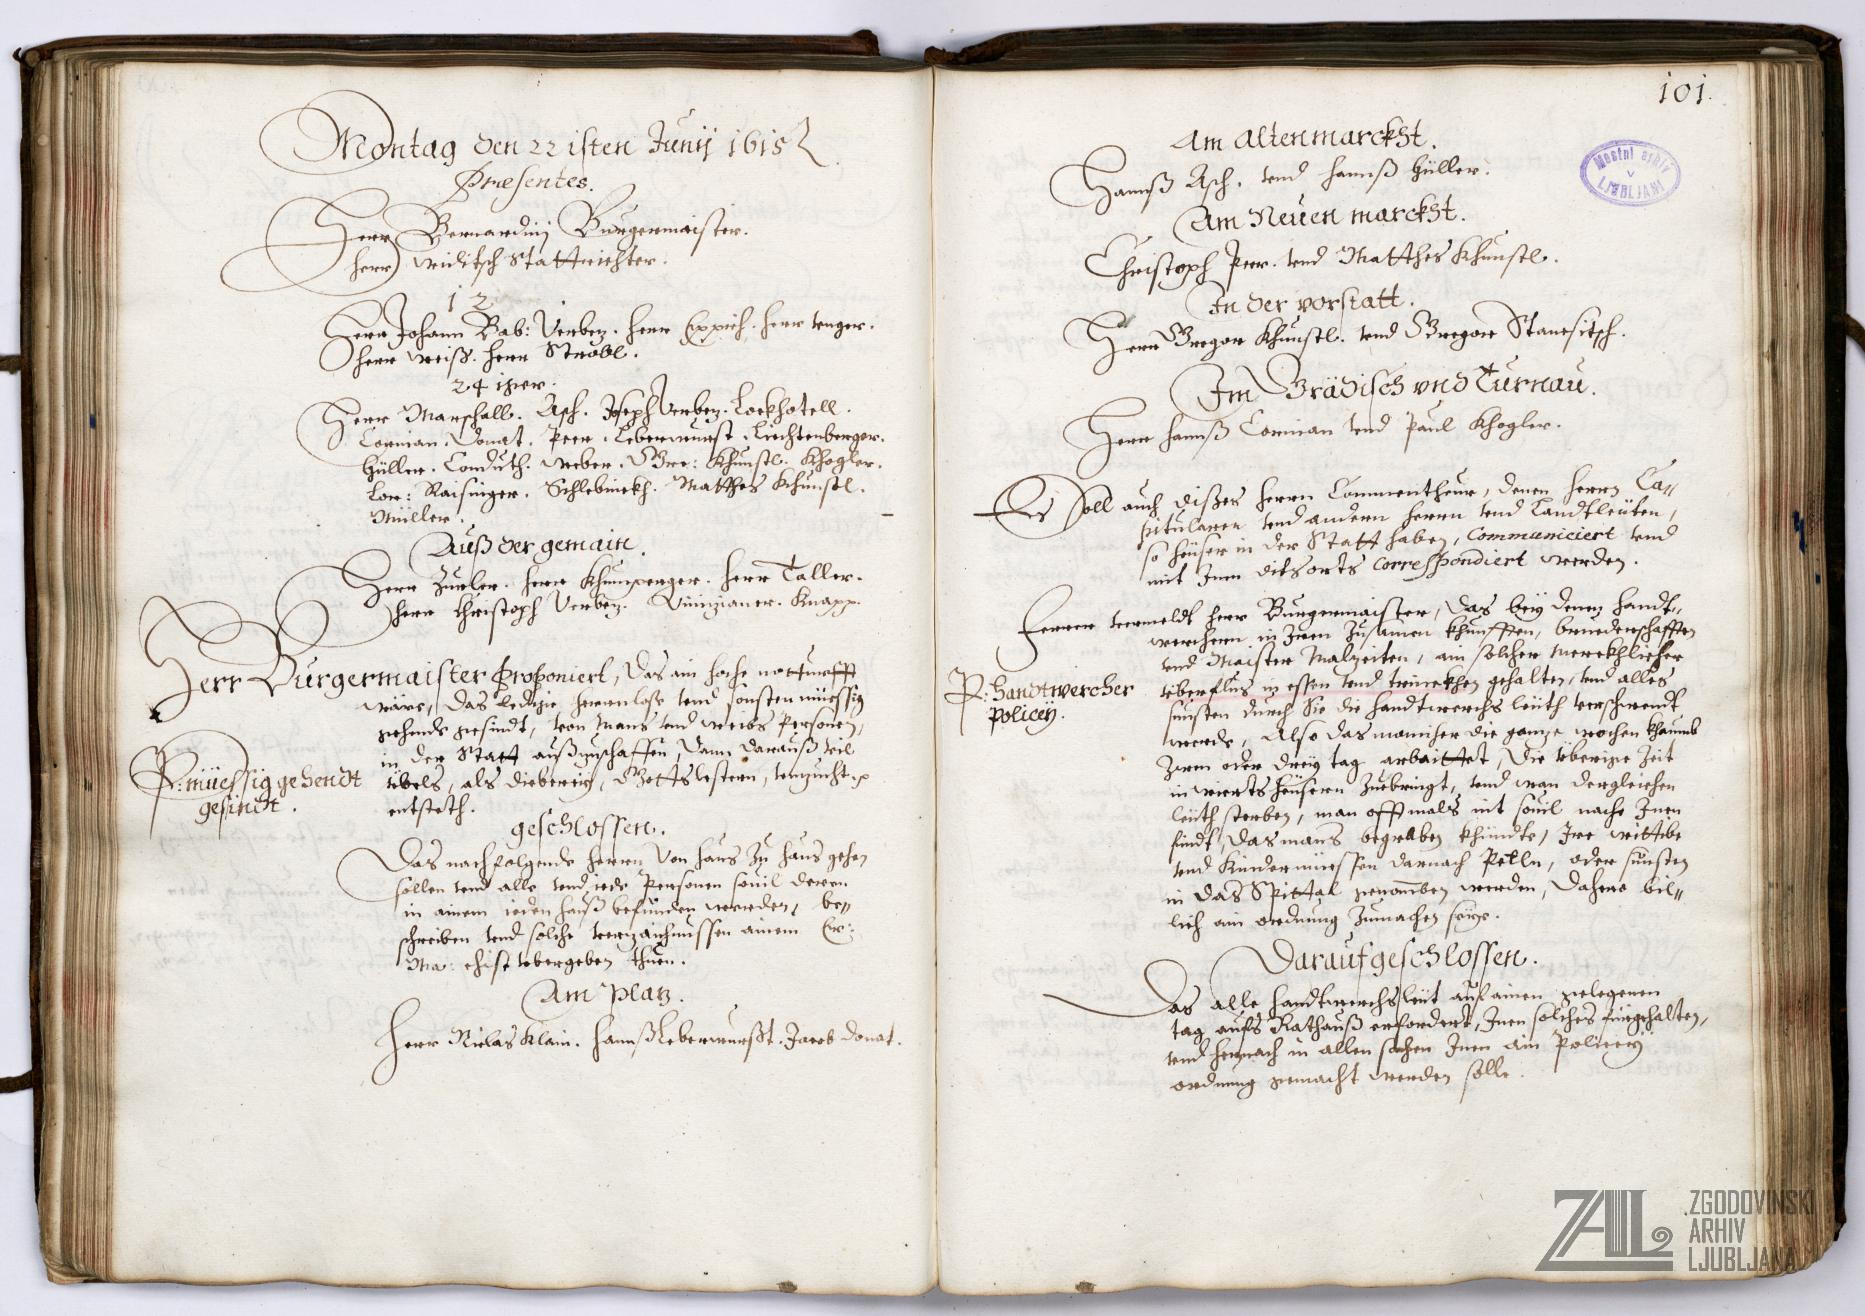 Montag den 22isten Junij 1615
Præsentes.
Herr Bernardinj Burgermaister.
herr widitsch Stattrichter.
12
Herr Johann Bab: Verbez. herr Eppich. herr venger.
herr weiß. herr Ströbl.
24iger.
Herr Marschall. Asch. Joseph Verbez. Lockhotell.
Cornian. Donat. Peer. Leberwurst. Liechtenberger.
Hüller. Conduth. weber. Gre: Khunstl. Khogler.
Lor: Raisinger. Schlebnickh. Matthes Khunstl.
Müller.
Auß der gemain.
Herr Zurler. herr Khumperger. herr Taller.
herr Christoph Verbez. Vinizianer. Knapp.
Herr Burgermaister Proponiert, das ain hoche notturfft
wäre, das ledige herrnlose vnd sonsten müessig
gehende gesindt, von Mans vnd weibs Personen,
in der Statt außzuschaffen, dann darauß vil
übels, als dieberey, Gottslestern, vnzucht
entsteth.
P: müessig gehendt
gesindt.
geschlossen.
Das nachfolgende herrn von haus zu haus gehen
sollen vnd alle vnd jede Personen souil deren
in ainem jeden hauß befunden werden, be„
schreiben vnd solche verzaichnussen ainem Er:
Ma: ehist vbergeben thuen.
Am Platz.
Herr Niclas Klain. hannß Leberwurßt. Jacob Donat.
101.
Mestni arhiv
v
LJUBLJANI
Am Altenmarckht.
Hannß Asch. vnd hannß Hüller.
Am Neuen marckht.
Christoph Peer. vnd Matthes Khunstl.
In der vorstatt.
Herr Gregor Khunstl. vnd Gregor Stanesitsch.
Im Grädisch vnd Turnau.
Herr hannß Cornian vnd Paul Khogler.
Es Soll auch dißes herrn Commentheur, denen herrn Ca„
pitularen vnd andern herrn vnd Landtleüten,
so heüser in der Statt haben, Communiciert vnd
mit Inen diß orts Correspondiert werden.
Ferrer vermeldt herr Burgermaister, das bey denen handt„
werchern in Iren zusamen khunfften, bruederschafften
vnd Maister Malzeiten, ain solcher merckhlicher
überflus in essen vnd trinckhen gehalten, vnd alles
sunsten durch Sie die handtwerchs leüth verschwendt
werde, Also das mannicher die ganze wochen khaumb
zwen oder drey tag arbaittet, die überige Zeit
in wierts heüsern zuebringt, vnd wan dergleichen
leüth sterben, man offtmals nit souil nach Inen
findt, das mans begraben khündte, Ire wittibe
vnd Kinder müessen darnach Petln, oder sunsten
in das Spittal genomben werden, dahero bil„
lich ain ordnung zumachen seye.
P: handtwercher
Policey.
Darauf geschlossen.
Das alle handtwerchsleüt auf ainen gelegenen
tag aufs Rathauß erfordert, Inen solches fürgehalten,
vnd hernach in allen sachen Inen ain Policey
ordnung gemacht werden solle.
ZAL
ZGODOVINSKI
ARHIV
LJUBLJANA